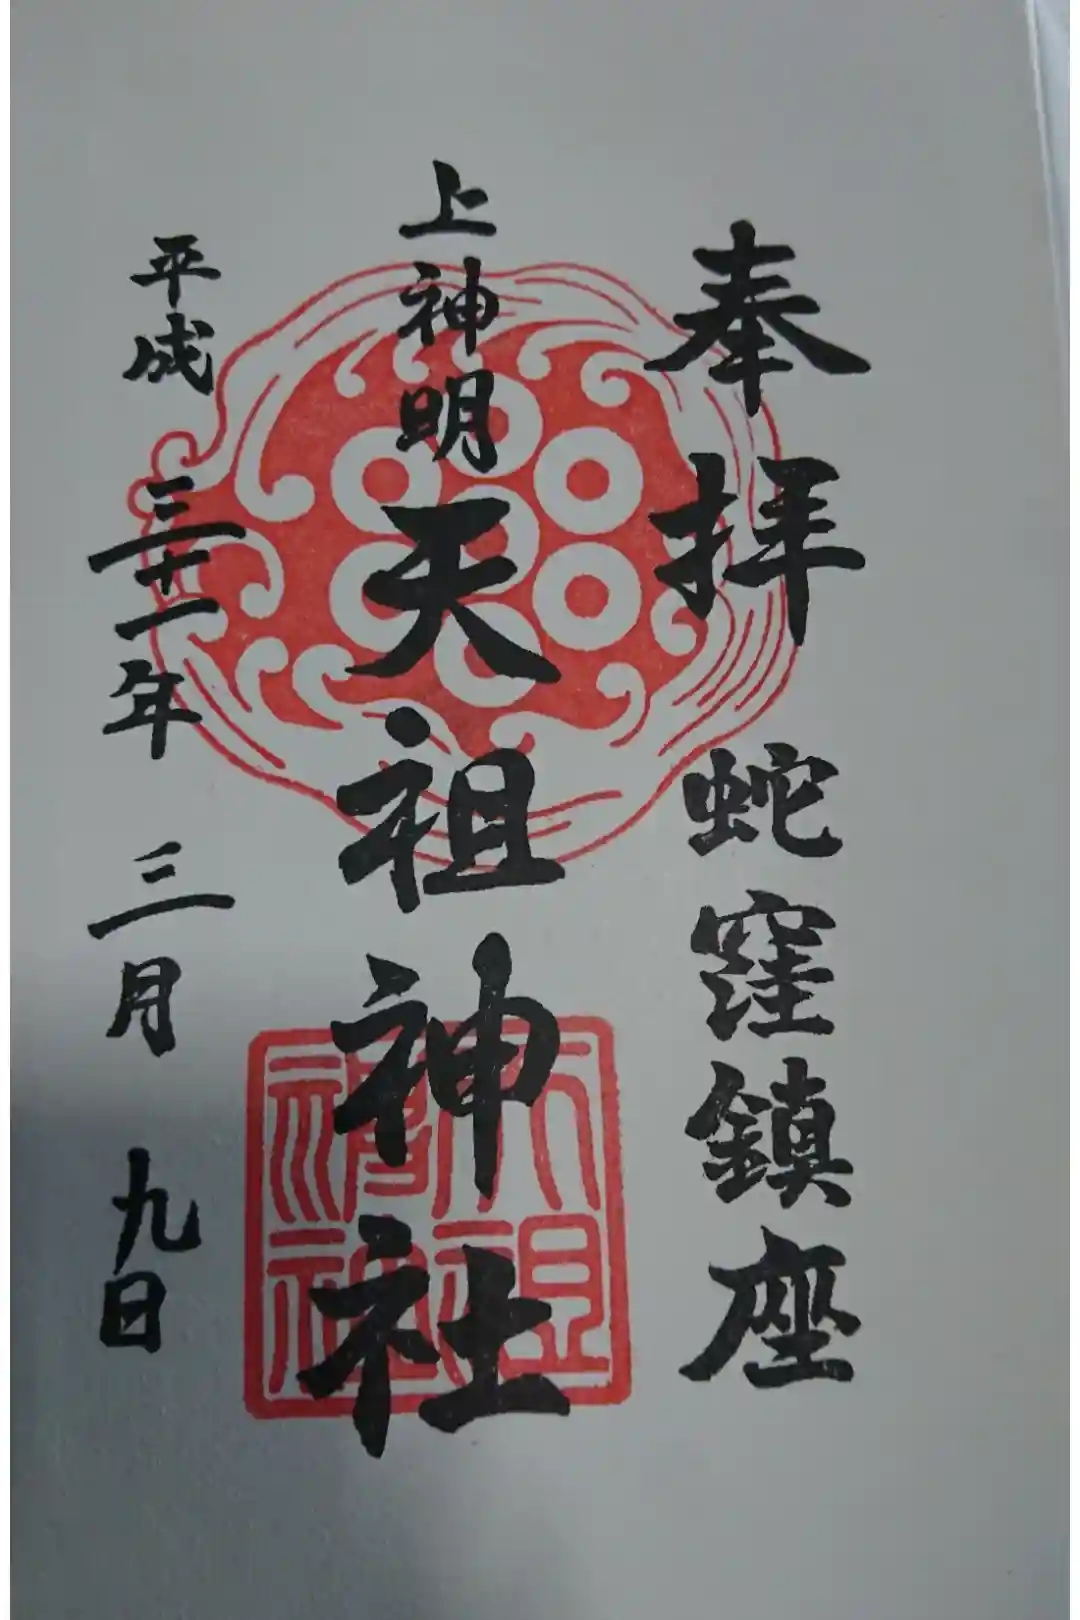 奉拝 蛇窪鎮座
上神明天祖神社
平成三十一年 三月 九日
天祖神社